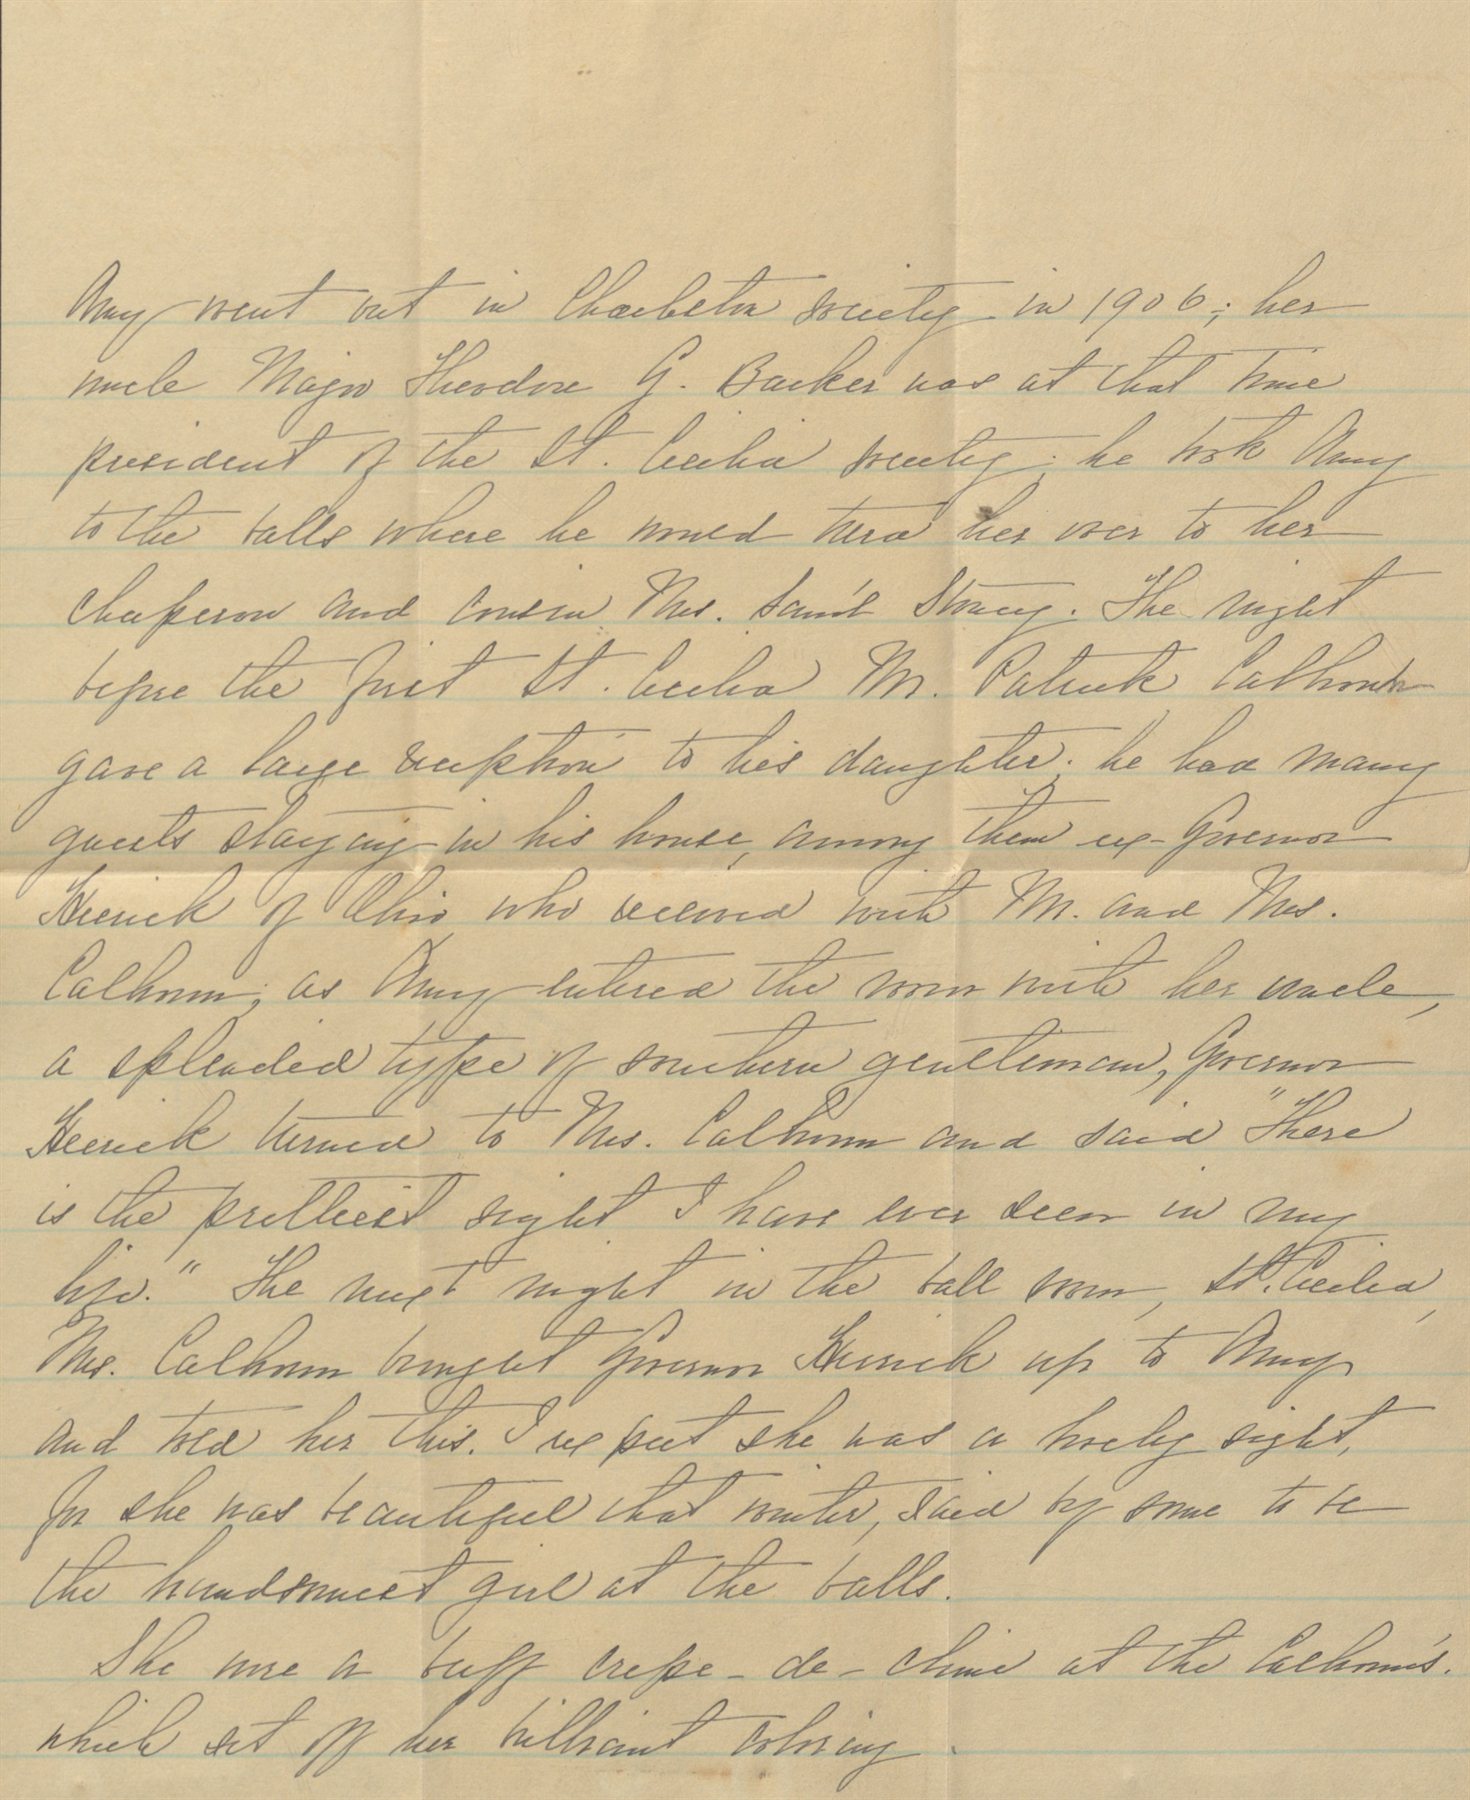 Amy went out in Charleston society in 1906; her
uncle Major Theodore G. Barker was at that time
president of the St. Cecilia society; he took Amy
to the balls where he would turn her over to her
chaperon and cousin Mrs. Sam'l Stoney. The night
before the first St. Cecilia Mr. Patrick Calhoun
gave a large reception to his daughter; he had many
guests staying in his house, among them ex-Governor
Herrick of Ohio who received with Mr. and Mrs.
Calhoun; as Amy entered the room with her uncle,
a splended type of southern gentleman, Governor
Herrick turned to Mrs. Calhoun and said "There
is the prettiest sight I have ever seen in my
life." The next night in the ball room, St. Cecilia,
Mrs. Calhoun brought Governor Herrick up to Amy
and told her this. I expect she was a lovely sight,
for she was beautiful that winter, said by some to be
the handsomest girl at the balls.
She wore a buff crepe-de-chine at the Calhoun's.
which set off her brilliant coloring.